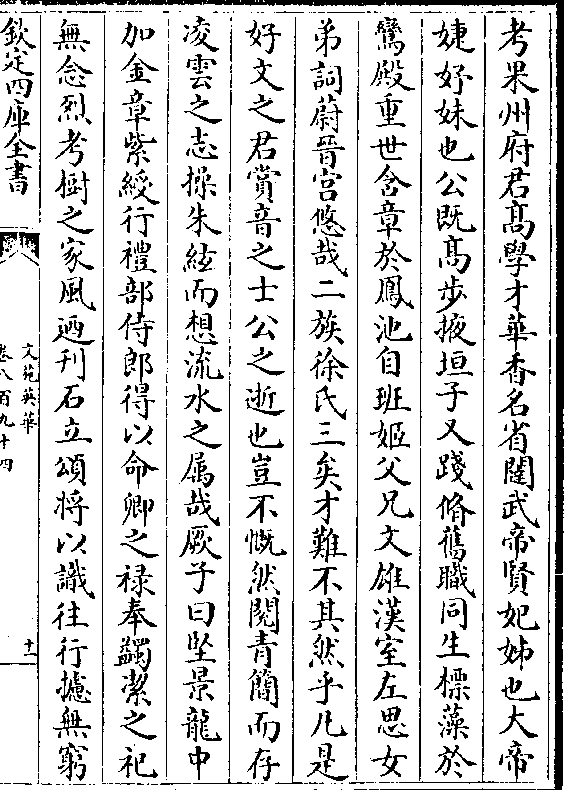 考果州府君髙學才華香名省闥武帝賢妃姊也大帝
婕妤妹也公既髙步掖垣子又踐脩舊職同生標藻於
鸞殿重世含章於鳳池自班姬父兄文雄漢室左思女
弟詞蔚晉宫悠哉二族徐氏三矣才難不其然乎凡是
好文之君賞音之士公之逝也豈不慨然閱青簡而存
凌雲之志操朱絃而想流水之属哉厥子曰堅景龍中
加金章紫綬行禮部侍郎得以命卿之禄奉蠲潔之祀
無念烈考樹之家風廼刊石立頌將以識往行攄無窮
欽定四庫全書
文苑英華
卷八百九十四
十一